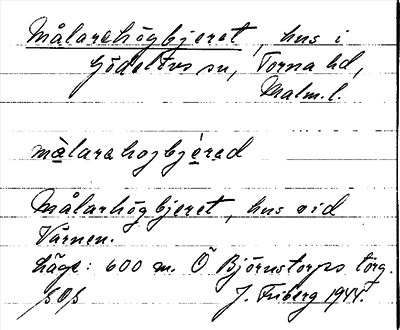 Målarehögbjeret, hus i
Gödelövs sn, Torna hd,
Malm.l.
màlarahojbjèred
Målarhögbjeret, hus vid
Varnen.
Läge: 600 m. Ö Björnstorps torg.
J. Friberg 1944.